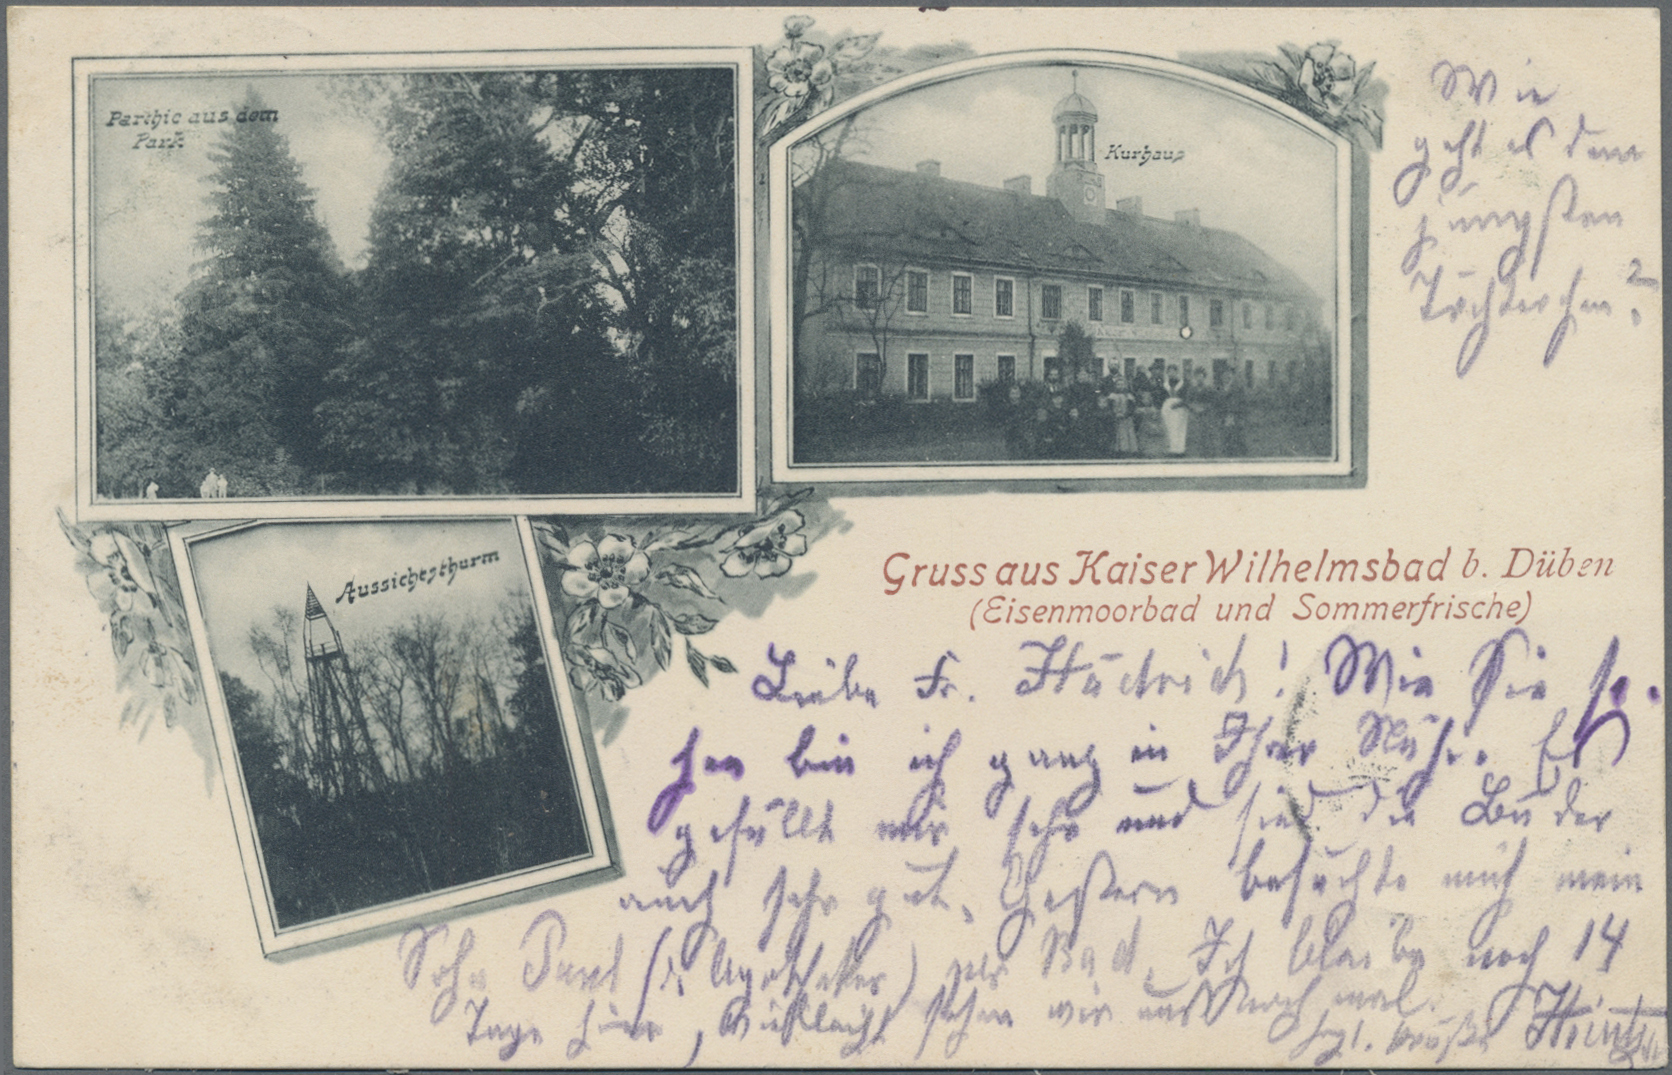 Parthie aus dem
Park
Kurhaus
Aussichtsthurm
Gruss aus Kaiser Wilhelmsbad b. Düben
(Eisenmoorbad und Sommerfrische)
Wie
geht es dem
jüngsten
Töchterchen?
Liebe Fr. ! Wie Sie se-
hen bin ich ganz in Ihrer Nähe. Es
gefällt mir sehr und sind die Bäder
auch sehr gut. Gestern besuchte mich mein
Sohn Paul (d. Apotheker) per Rad. Ich bleibe noch 14
Tage hier, vielleicht sehen wir uns noch mal.
hzl. Grüße